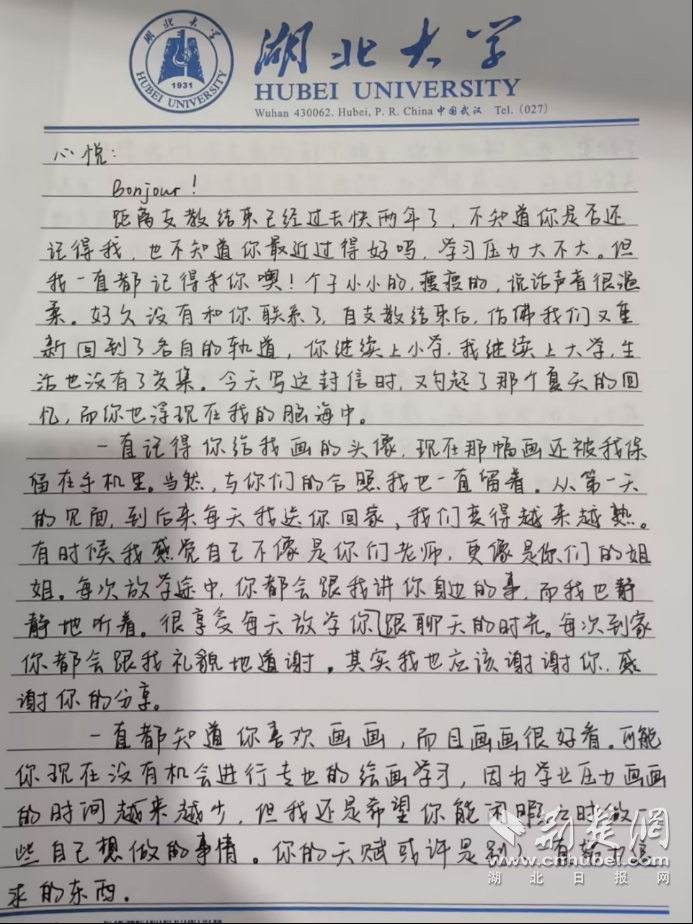 湖北大学
1931
HUBEI UNIVERSITY
湖北大学
HUBEI UNIVERSITY
Wuhan 430062. Hubei, P. R. China 中国武汉 Tel. (027)
心悦：
Bonjour!
距离支教结束已经过去快两年了，不知道你是否还
记得我，也不知道你最近过得好吗，学习压力大不大。但
我一直都记得你噢！个子小小的，瘦瘦的，说话声音很温
柔。好久没有和你联系了，自支教结束后，仿佛我们又重
新回到了各自的轨道，你继续上小学，我继续上大学，生
活也没有了交集。今天写这封信时，又勾起了那个夏天的回
忆，而你也浮现在我的脑海中。
一直记得你给我画的头像，现在那幅画还被我保
留在手机里。当然，与你们的合照我也一直留着。从第一天
的见面，到后来每天我送你回家，我们变得越来越熟。
有时候我感觉自己不像是你们老师，更像是你们的姐
姐。每次放学途中，你都会跟我讲你身边的事，而我也静
静地听着。很享受每天放学你跟聊天的时光。每次到家
你都会跟我礼貌地道谢。其实我也应该谢谢你，感
谢你的分享。
一直都知道你喜欢画画，而且画画很好看。可能
你现在没有机会进行专业的绘画学习，因为学业压力画画
的时间越来越少，但我还是希望你能闲暇之时做
些自己想做的事情。你的天赋或许是别人一直
求的东西。
荆楚网
www.cnhubei.com
湖北日报网